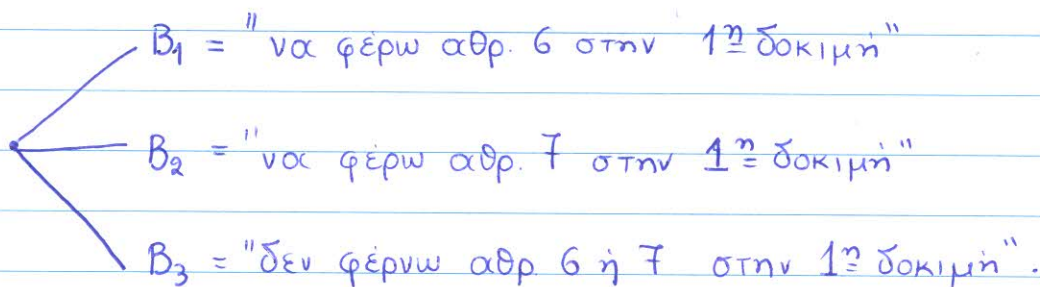 B₁ = "να φέρω αθρ. 6 στην 1η δοκιμή"
B₂ = "να φέρω αθρ. 7 στην 1η δοκιμή"
B₃ = "δεν φέρνω αθρ. 6 ή 7 στην 1η δοκιμή".